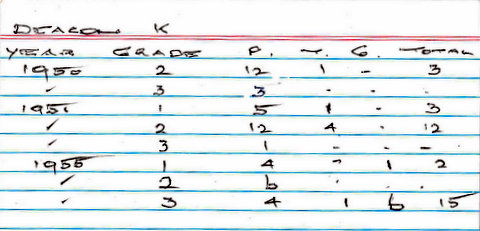 DEACON K
YEAR GRADE P. T. G. TOTAL
1950 2 12 1 - 3
✓ 3 3 - - -
1951 1 5 1 - 3
✓ 2 12 4 - 12
✓ 3 1 - - -
1955 1 4 - 1 2
✓ 2 6 - - -
✓ 3 4 1 6 15